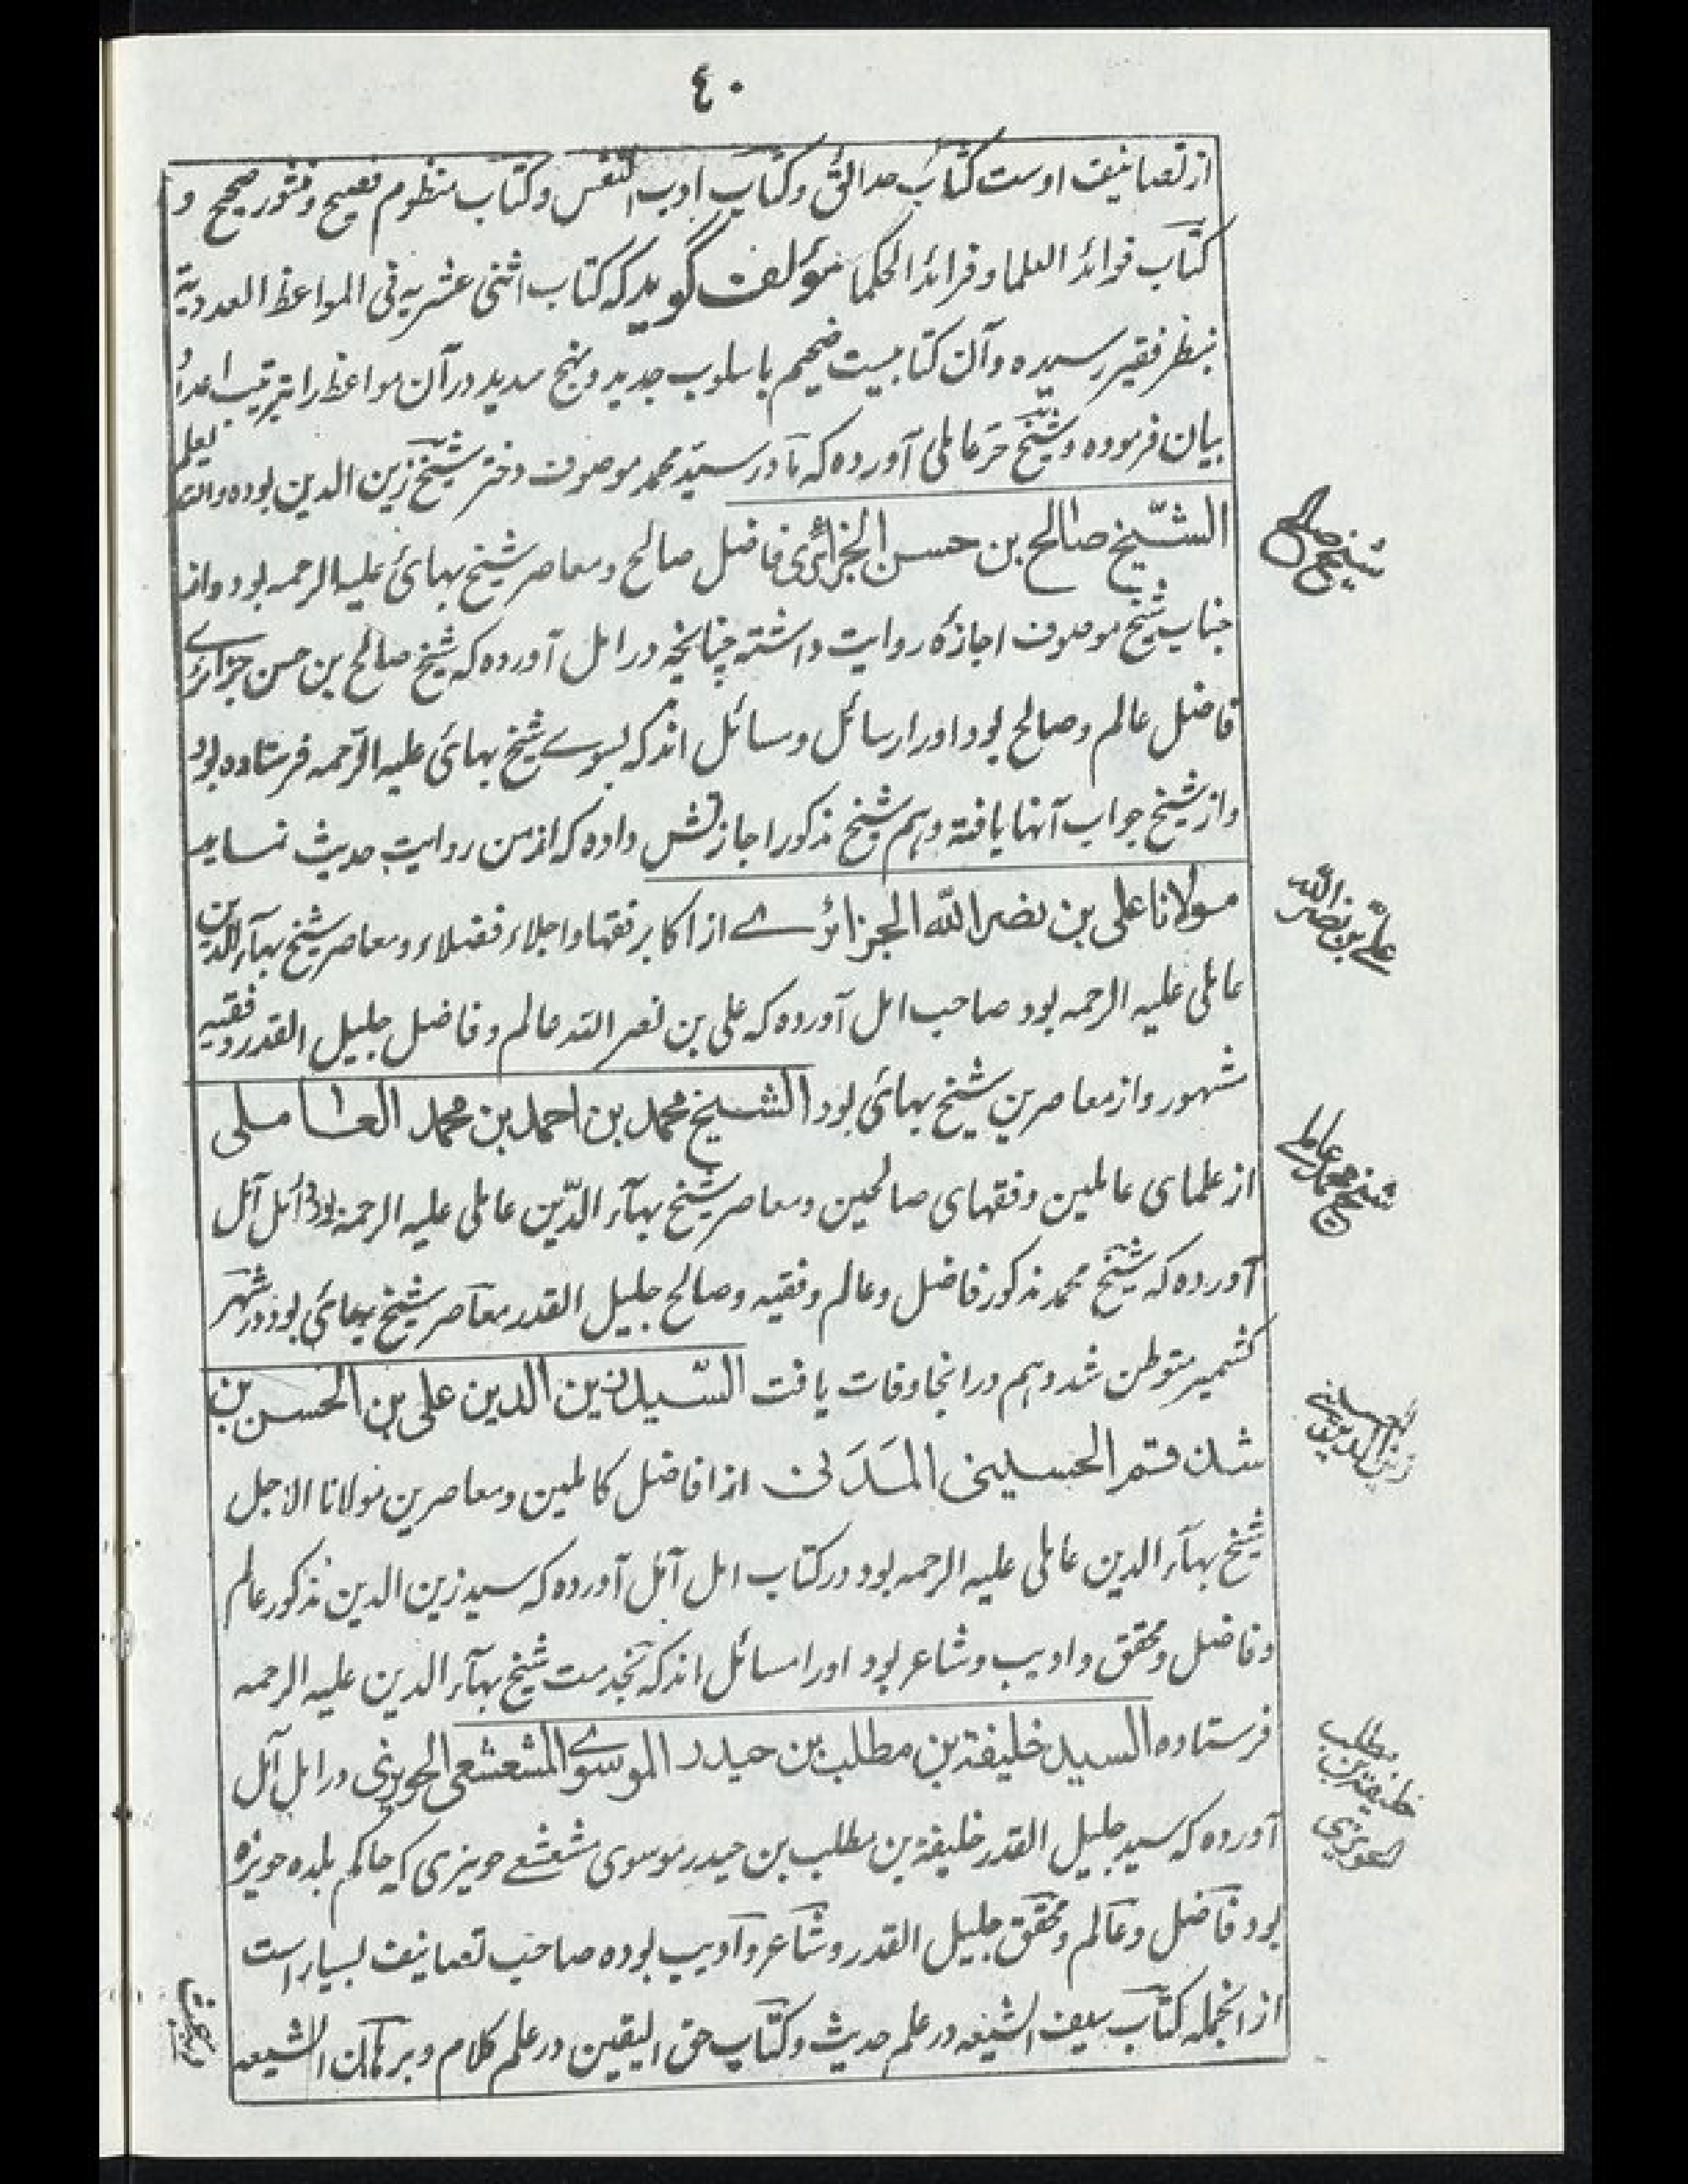 ٤٠
از تصانیف اوست کتاب حدائق و کتاب ادب النفس و کتاب منظوم فصیح و منثور صحیح و
کتاب فوائد العلما و فرائد الحکما مؤلف گوید که کتاب اثنی عشریه فی المواعظ العددیة
بنظر فقیر رسیده و آن کتابیست ضخیم باسلوب جدید و نهج سدید در آن مواعظ را بترتیب اعداد
بیان فرموده و شیخ حر عاملی آورده که مادر سید محمد موصوف دختر شیخ زین الدین بوده والله یعلم
الشیخ صالح بن حسن الجزائری فاضل صالح و معاصر شیخ بهائی علیه الرحمه بود و از
جناب شیخ موصوف اجازهٔ روایت داشته چنانچه در امل آورده که شیخ صالح بن حسن جزائرے
فاضل عالم و صالح بود او را رسائل و سائل اند که بسوے شیخ بهائی علیه الرحمه فرستاده بود
و از شیخ جواب آنها یافته و هم شیخ مذکور اجازتش داده که از من روایت حدیث نماید
مولانا علی بن نصر الله الجزائرے از اکابر فقها و اجلاء فضلاء و معاصر شیخ بهآء الدین
عاملی علیه الرحمه بود صاحب امل آورده که علی بن نصر الله عالم و فاضل جلیل القدر و فقیه
شهور و از معاصرین شیخ بهائی بود الشیخ محمد بن احمد بن محمد العاملی
از علمای عاملین و فقهای صالحین و معاصر شیخ بهآء الدّین عاملی علیه الرحمه بود در امل آمل
آورده که شیخ محمد مذکور فاضل و عالم و فقیه و صالح جلیل القدر معاصر شیخ بهائی بود در شهر
کشمیر متوطن شد و هم در انجا وفات یافت السّید زین الدین علی بن الحسن بن
شدقم الحسینی المَدَنی از افاضل کاملین و معاصرین مولانا الاجل
شیخ بهآء الدین عاملی علیه الرحمه بود در کتاب امل آمل آورده که سید زین الدین مذکور عالم
و فاضل و محقق و ادیب و شاعر بود او را مسائل اند که بخدمت شیخ بهآء الدین علیه الرحمه
فرستاده السید خلیفة بن مطلب بن حیدر الموسوے المشعشعی الحویزی در امل آمل
آورده که سید جلیل القدر خلیفة بن مطلب بن حیدر موسوی مشعشعے حویزی که حاکم بلده حویزه
بود فاضل و عالم و محقق جلیل القدر و شاعر و ادیب بوده صاحب تصانیف بسیار است
از انجمله کتاب سیف الشیعه در علم حدیث و کتاب حق الیقین در علم کلام و برهان الشیعه
شیخ صالح
علے بن نصر الله
شیخ محمد عاملے
زین الدین
خلیفة بن مطلب
الحویزی